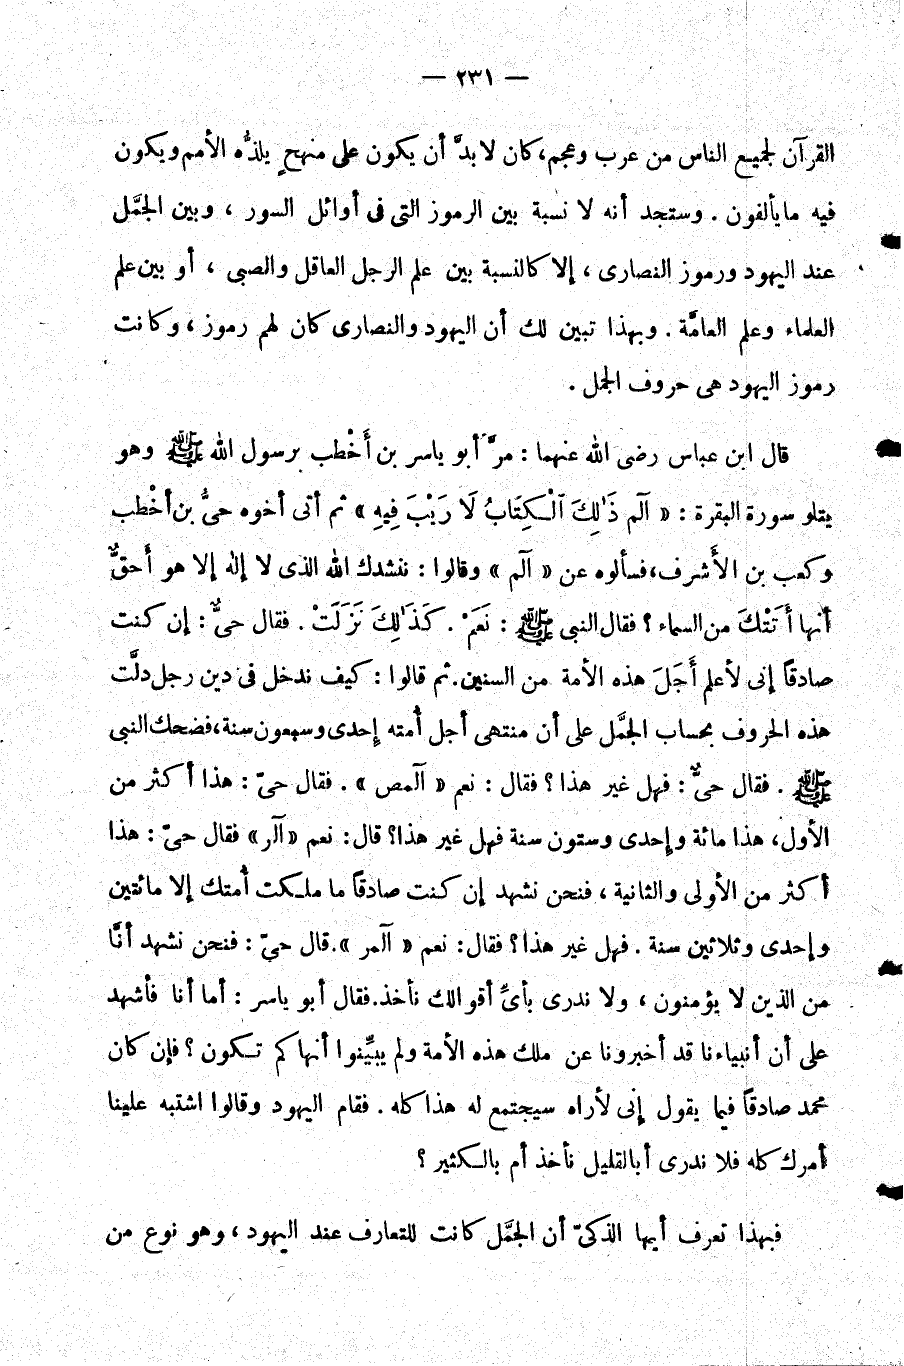 — ٢٣١ —
القرآن لجميع الناس من عرب وعجم، كان لا بدَّ أن يكون على منهجٍ يلذُّه الأمم ويكون
فيه ما يألفون . وستجد أنه لا نسبة بين الرموز التى فى أوائل السور ، وبين الجمَّل
عند اليهود ورموز النصارى ، إلا كالنسبة بين علم الرجل العاقل والصبى ، أو بين علم
العلماء وعلم العامَّة . وبهذا تبين لك أن اليهود والنصارى كان لهم رموز ، وكانت
رموز اليهود هى حروف الجمل .
قال ابن عباس رضى الله عنهما : مرَّ أبو ياسر بن أَخْطب برسول الله ﷺ وهو
يتلو سورة البقرة : « آلم ذَٰلِكَ ٱلْكِتَابُ لَا رَيْبَ فِيهِ » ثم أتى أخوه حىُّ بن أخْطب
وكعب بن الأَشرف، فسألوه عن « آلم » وقالوا : ننشدك الله الذى لا إله إلا هو أَحقٌّ
أنها أَتَتْكَ من السماء ؟ فقال النبى ﷺ : نَعَمْ . كَذَٰلِكَ نَزَلَتْ . فقال حىٌّ : إن كنت
صادقاً إنى لأعلم أَجَلَ هذه الأمة من السنين. ثم قالوا : كيف ندخل فى دين رجل دلَّت
هذه الحروف بحساب الجمَّل على أن منتهى أجل أُمته إحدى وسبعون سنة، فضحك النبى
ﷺ . فقال حىٌّ : فهل غير هذا ؟ فقال : نعم « آلمص » . فقال حىّ : هذا أكثر من
الأول، هذا مائة وإحدى وستون سنة فهل غير هذا؟ قال: نعم «آلر» فقال حىّ : هذا
أكثر من الأولى والثانية ، فنحن نشهد إن كنت صادقاً ما ملكت أُمتك إلا مائتين
وإحدى وثلاثين سنة . فهل غير هذا ؟ فقال: نعم « آلمر ». قال حىّ : فنحن نشهد أنَّا
من الذين لا يؤمنون ، ولا ندرى بأىِّ أقوالك نأخذ. فقال أبو ياسر : أما أنا فأشهد
على أن أنبياءنا قد أخبرونا عن ملك هذه الأمة ولم يبيِّنوا أنها كم تكون ؟ فإن كان
محمد صادقاً فيما يقول إنى لأراه سيجتمع له هذا كله . فقام اليهود وقالوا اشتبه علينا
أمرك كله فلا ندرى أبالقليل نأخذ أم بالكثير ؟
فبهذا تعرف أيها الذكىّ أن الجمَّل كانت للتعارف عند اليهود ، وهو نوع من